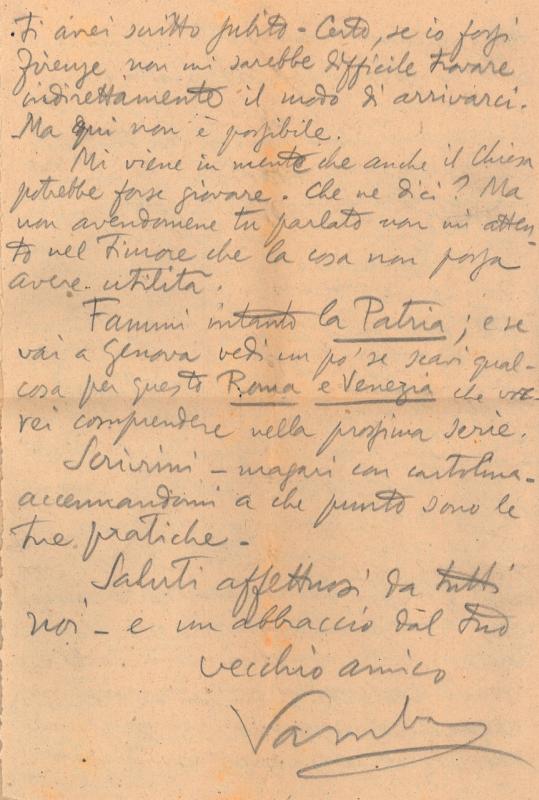 Ti avrei scritto subito - Certo, se io fossi
Firenze non mi sarebbe difficile trovare
indirettamente il modo di arrivarci.
Ma qui non è possibile.
Mi viene in mente che anche il Chiesa
potrebbe forse giovare. Che ne dici? Ma
non avendomene tu parlato non mi atten-
to nel timore che la cosa non possa
avere utilità.
Fammi intanto la Patria; e se
vai a Genova vedi un po' se scavi qual-
cosa per questo Roma e Venezia che vor-
rei comprendere nella prossima serie.
Scrivimi - magari con cartolina -
accennandomi a che punto sono le
tue pratiche -
Saluti affettuosi da tutti
noi - e un abbraccio dal tuo
vecchio amico
Vamba